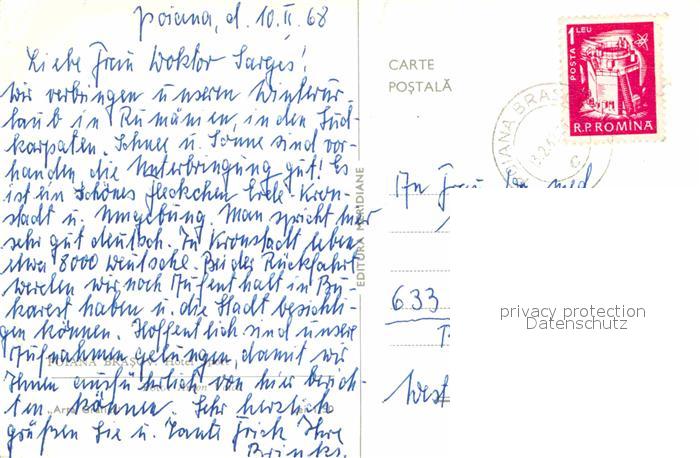 Poiana, d. 10.II.68
Liebe Frau Doktor Sarges!
Wir verbringen unseren Winterur-
laub in Rumänien, in den Süd-
karpaten. Schnee u. Sonne sind vor-
handen, die Unterbringung gut! Es
ist ein schönes Fleckchen Erde - Kron-
stadt u. Umgebung. Man spricht hier
sehr gut deutsch. In Kronstadt leben
etwa 8000 Deutsche. Bei der Rückfahrt
werden wir noch Aufenthalt in Bu-
karest haben u. die Stadt besichti-
gen können. Hoffentlich sind unsere
Aufnahmen gelungen, damit wir
Ihnen ausführlich von hier berich-
ten können. Sehr herzlich
grüßen Sie u. Tante Frick Ihre
Brinks.
POIANA BRAȘOV. Hotel
"Arta
EDITURA MERIDIANE
CARTE
POȘTALĂ
POSTA 1 LEU
R.P.ROMINA
POIANA BRAȘ
An Frau Dr. med
633
West
privacy protection
Datenschutz